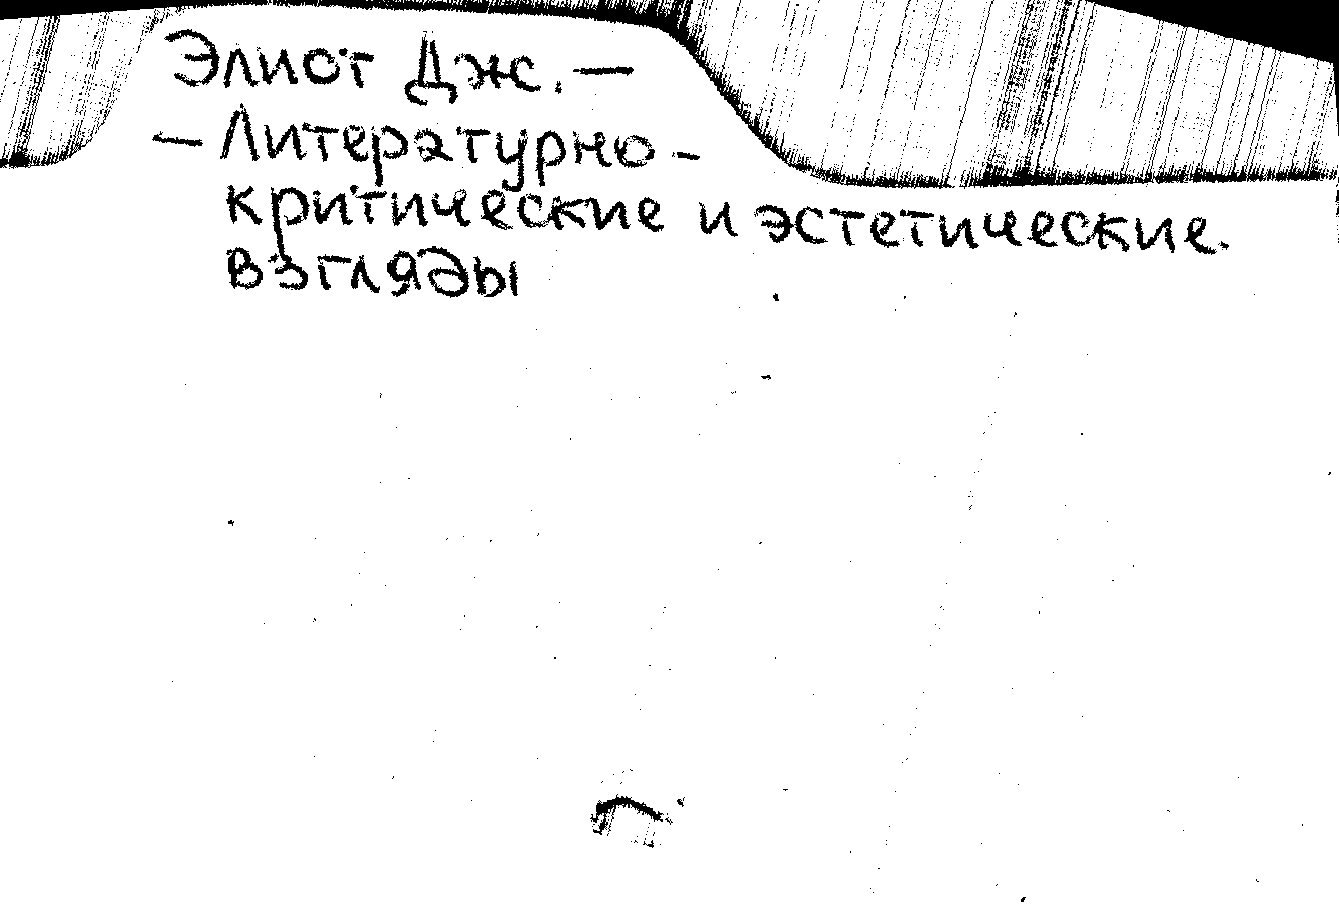 Элиот Дж. —
— Литературно -
критические и эстетические.
взгляды